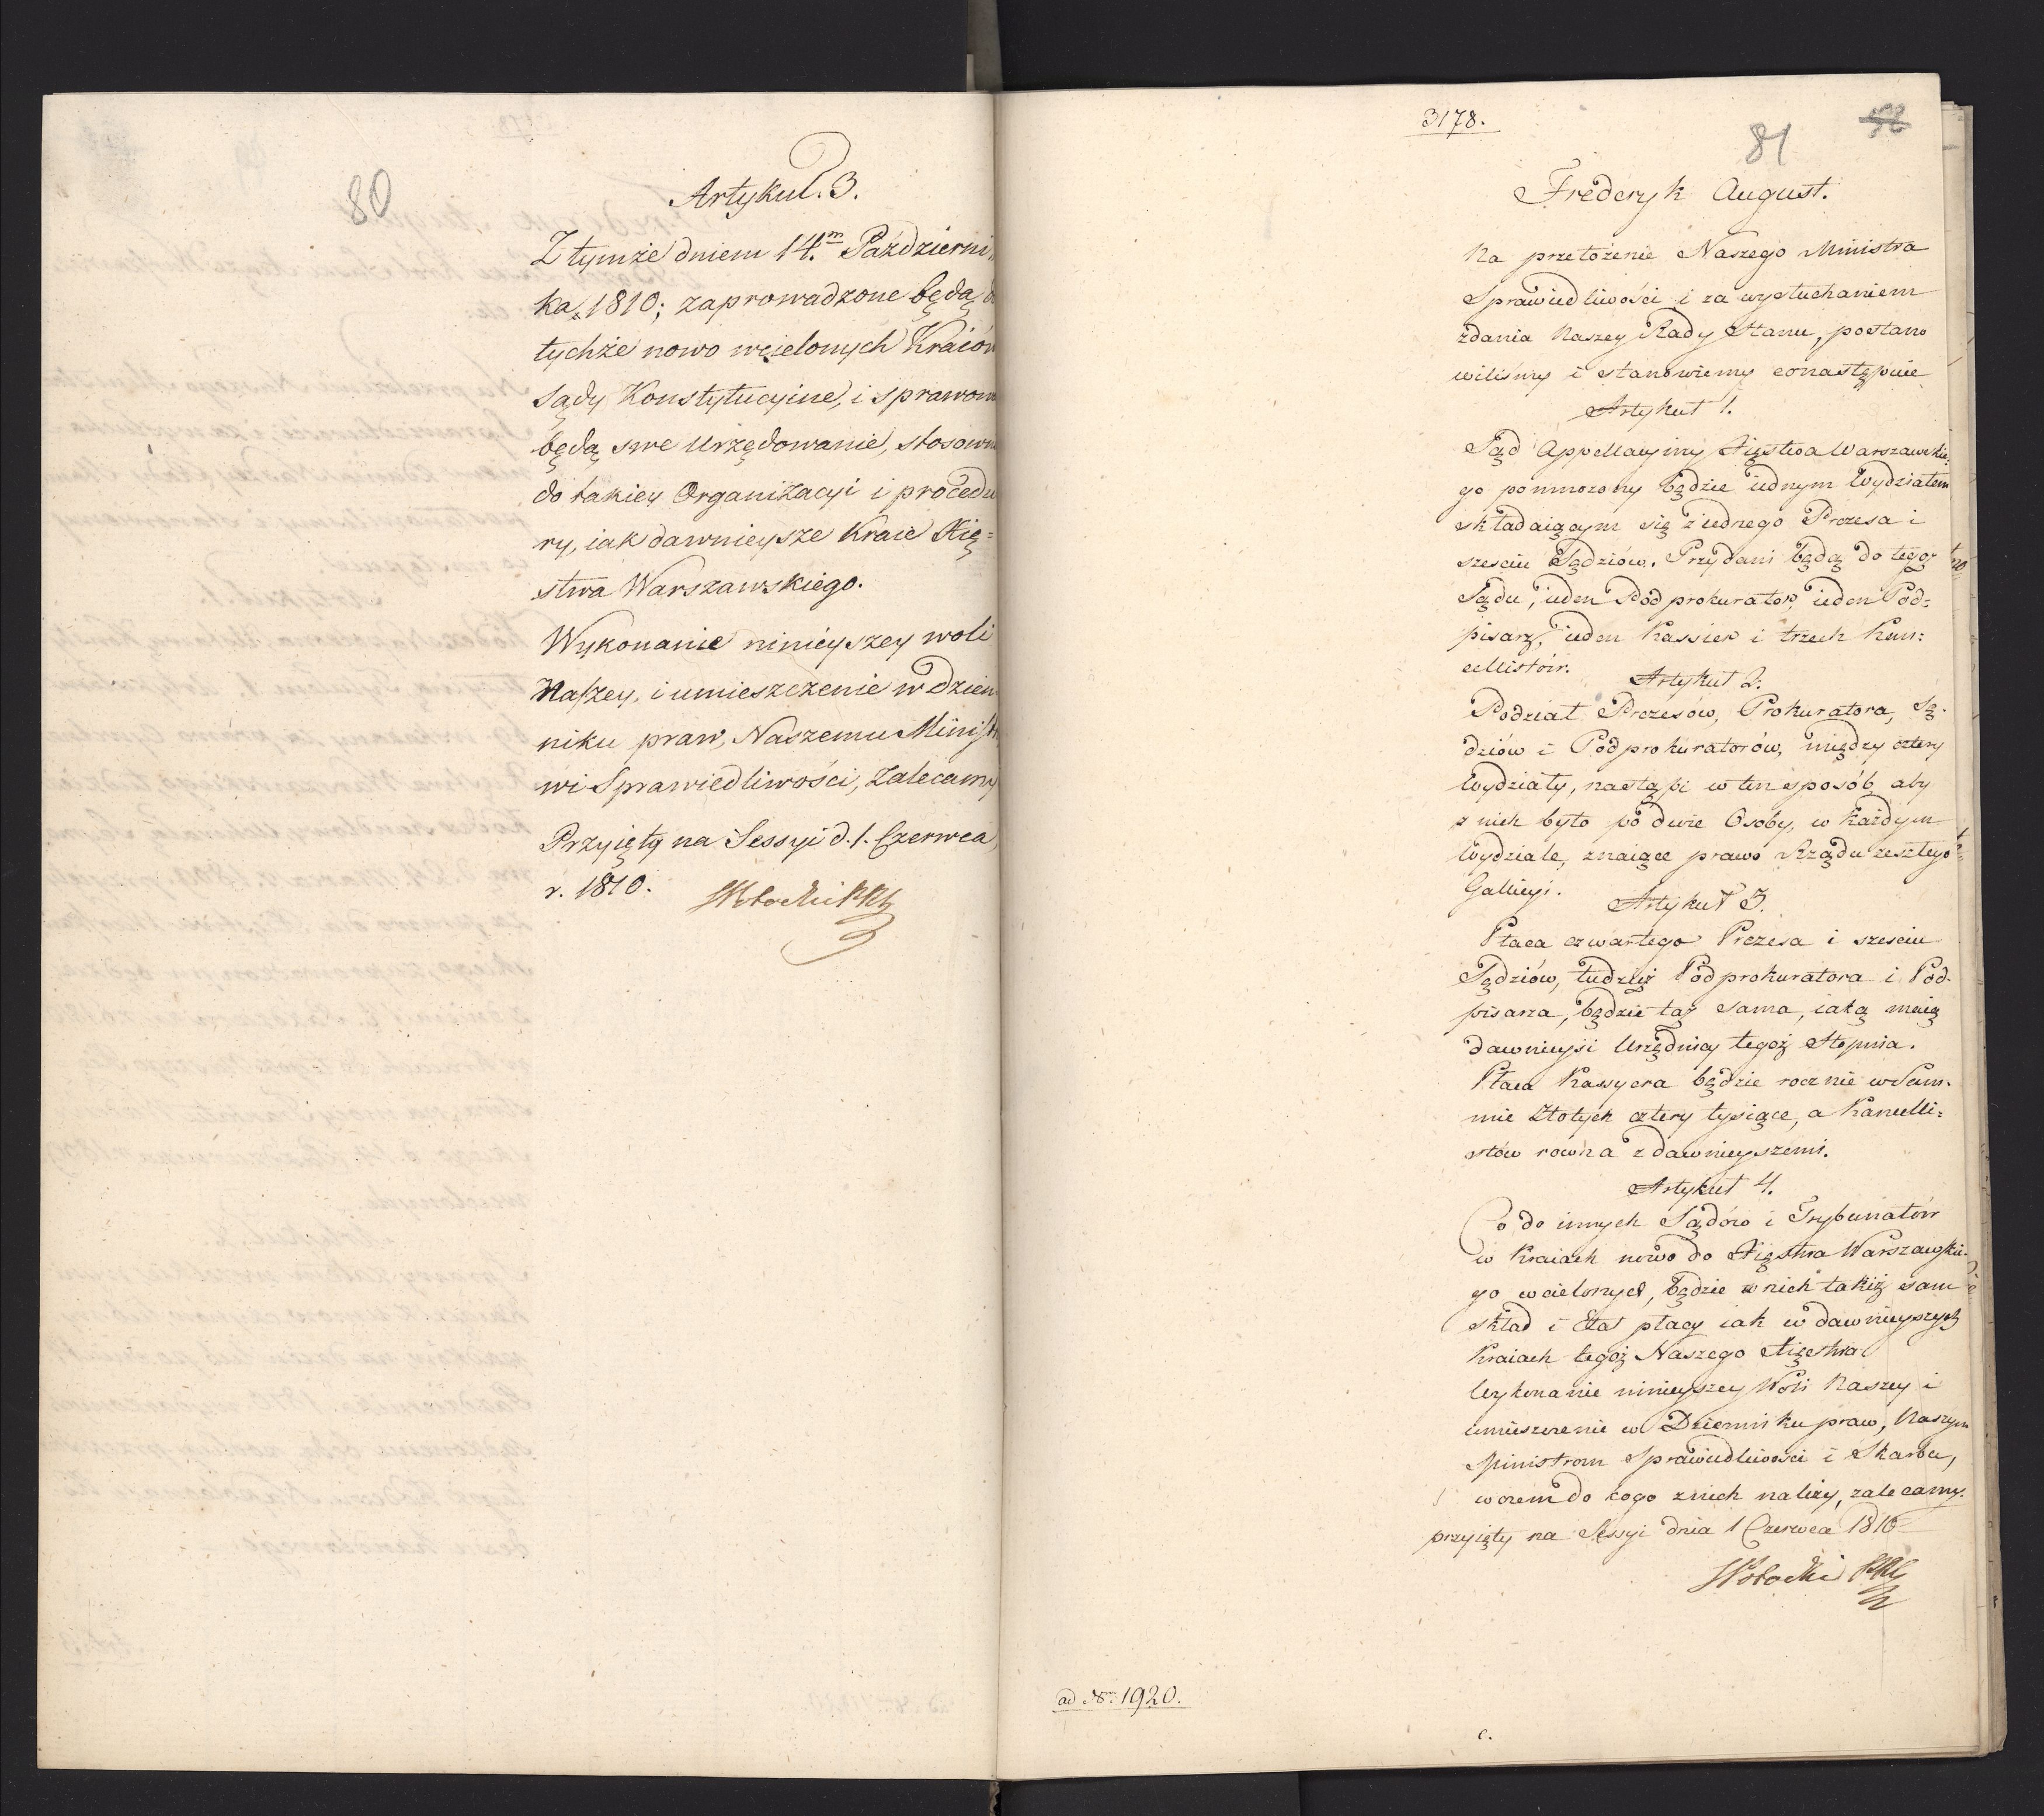 80
Artykuł. 3.
Z tymże dniem 14.m Październi
ka 1810; zaprowadzone będą d
tychże nowo wcielonych Kraiów
Sądy Konstytucyine, i sprawow
będą swe Urzędowanie, stosown
do takiey Organizacyi i procedu
ry, iak dawnieysze Kraie Xię=
stwa Warszawskiego.
Wykonanie ninieyszey woli
Naszey, i umieszczenie w dzien
niku praw, Naszemu Ministr
wi Sprawiedliwości, Zalecamy
Przyięty na Sessyi d. 1. Czerwca,
r. 1810.
SPotocki PRS
3178.
81
Frederyk August.
Na przełożenie Naszego Ministra
Sprawiedliwości i za wysłuchaniem
zdania Naszey Rady Stanu, postano
wiliśmy i stanowiemy co następuie
Artykuł 1.
Sąd Appellacyiny Xięstwa Warszawskie=
go pomnożony będzie iednym Wydziałem
składaiącym się z iednego Prezesa i
sześciu Sędziów. Przydani będą do tegoż
Sądu, ieden Podprokurator, ieden Pod=
pisarz, ieden Kassier i trzech Kan=
cellistów.
Artykuł 2.
Podział Prezesów, Prokuratora, Sę-
dziów i Podprokuratorów, między cztery
Wydziały, nastąpi w ten sposób, aby
z nich było po dwie Osoby, w każdym
Wydziale, znaiące prawo Rządu zeszłego
Gallicyi.
Artykuł 3.
Płaca czwartego Prezesa i sześciu
Sędziów, tudzież Podprokuratora i Pod-
pisarza, będzie taż sama, iaką maią
dawnieysi Urzędnicy tegoż Stopnia.
Płaca Kassyera będzie rocznie w Sum-
mie Złotych cztery tysiące, a Kancelli=
stów równa z dawnieyszemi.
Artykuł 4.
Co do innych Sądów i Trybunałów
w Kraiach nowo do Xięstwa Warszawskie-
go wcielonych, będzie w nich takiż sam
skład i Etat płacy iak w dawnieyszych
Kraiach tegoż Naszego Xięstwa
Wykonanie ninieyszey Woli Naszey i
umieszczenie w Dzienniku praw, Naszym
Ministrom Sprawiedliwości i Skarbu,
w czem do kogo z nich należy, zalecamy.
przyięty na Sessyi dnia 1 Czerwca 1810
SPotocki PRS
ad Nrm 1920.
c.